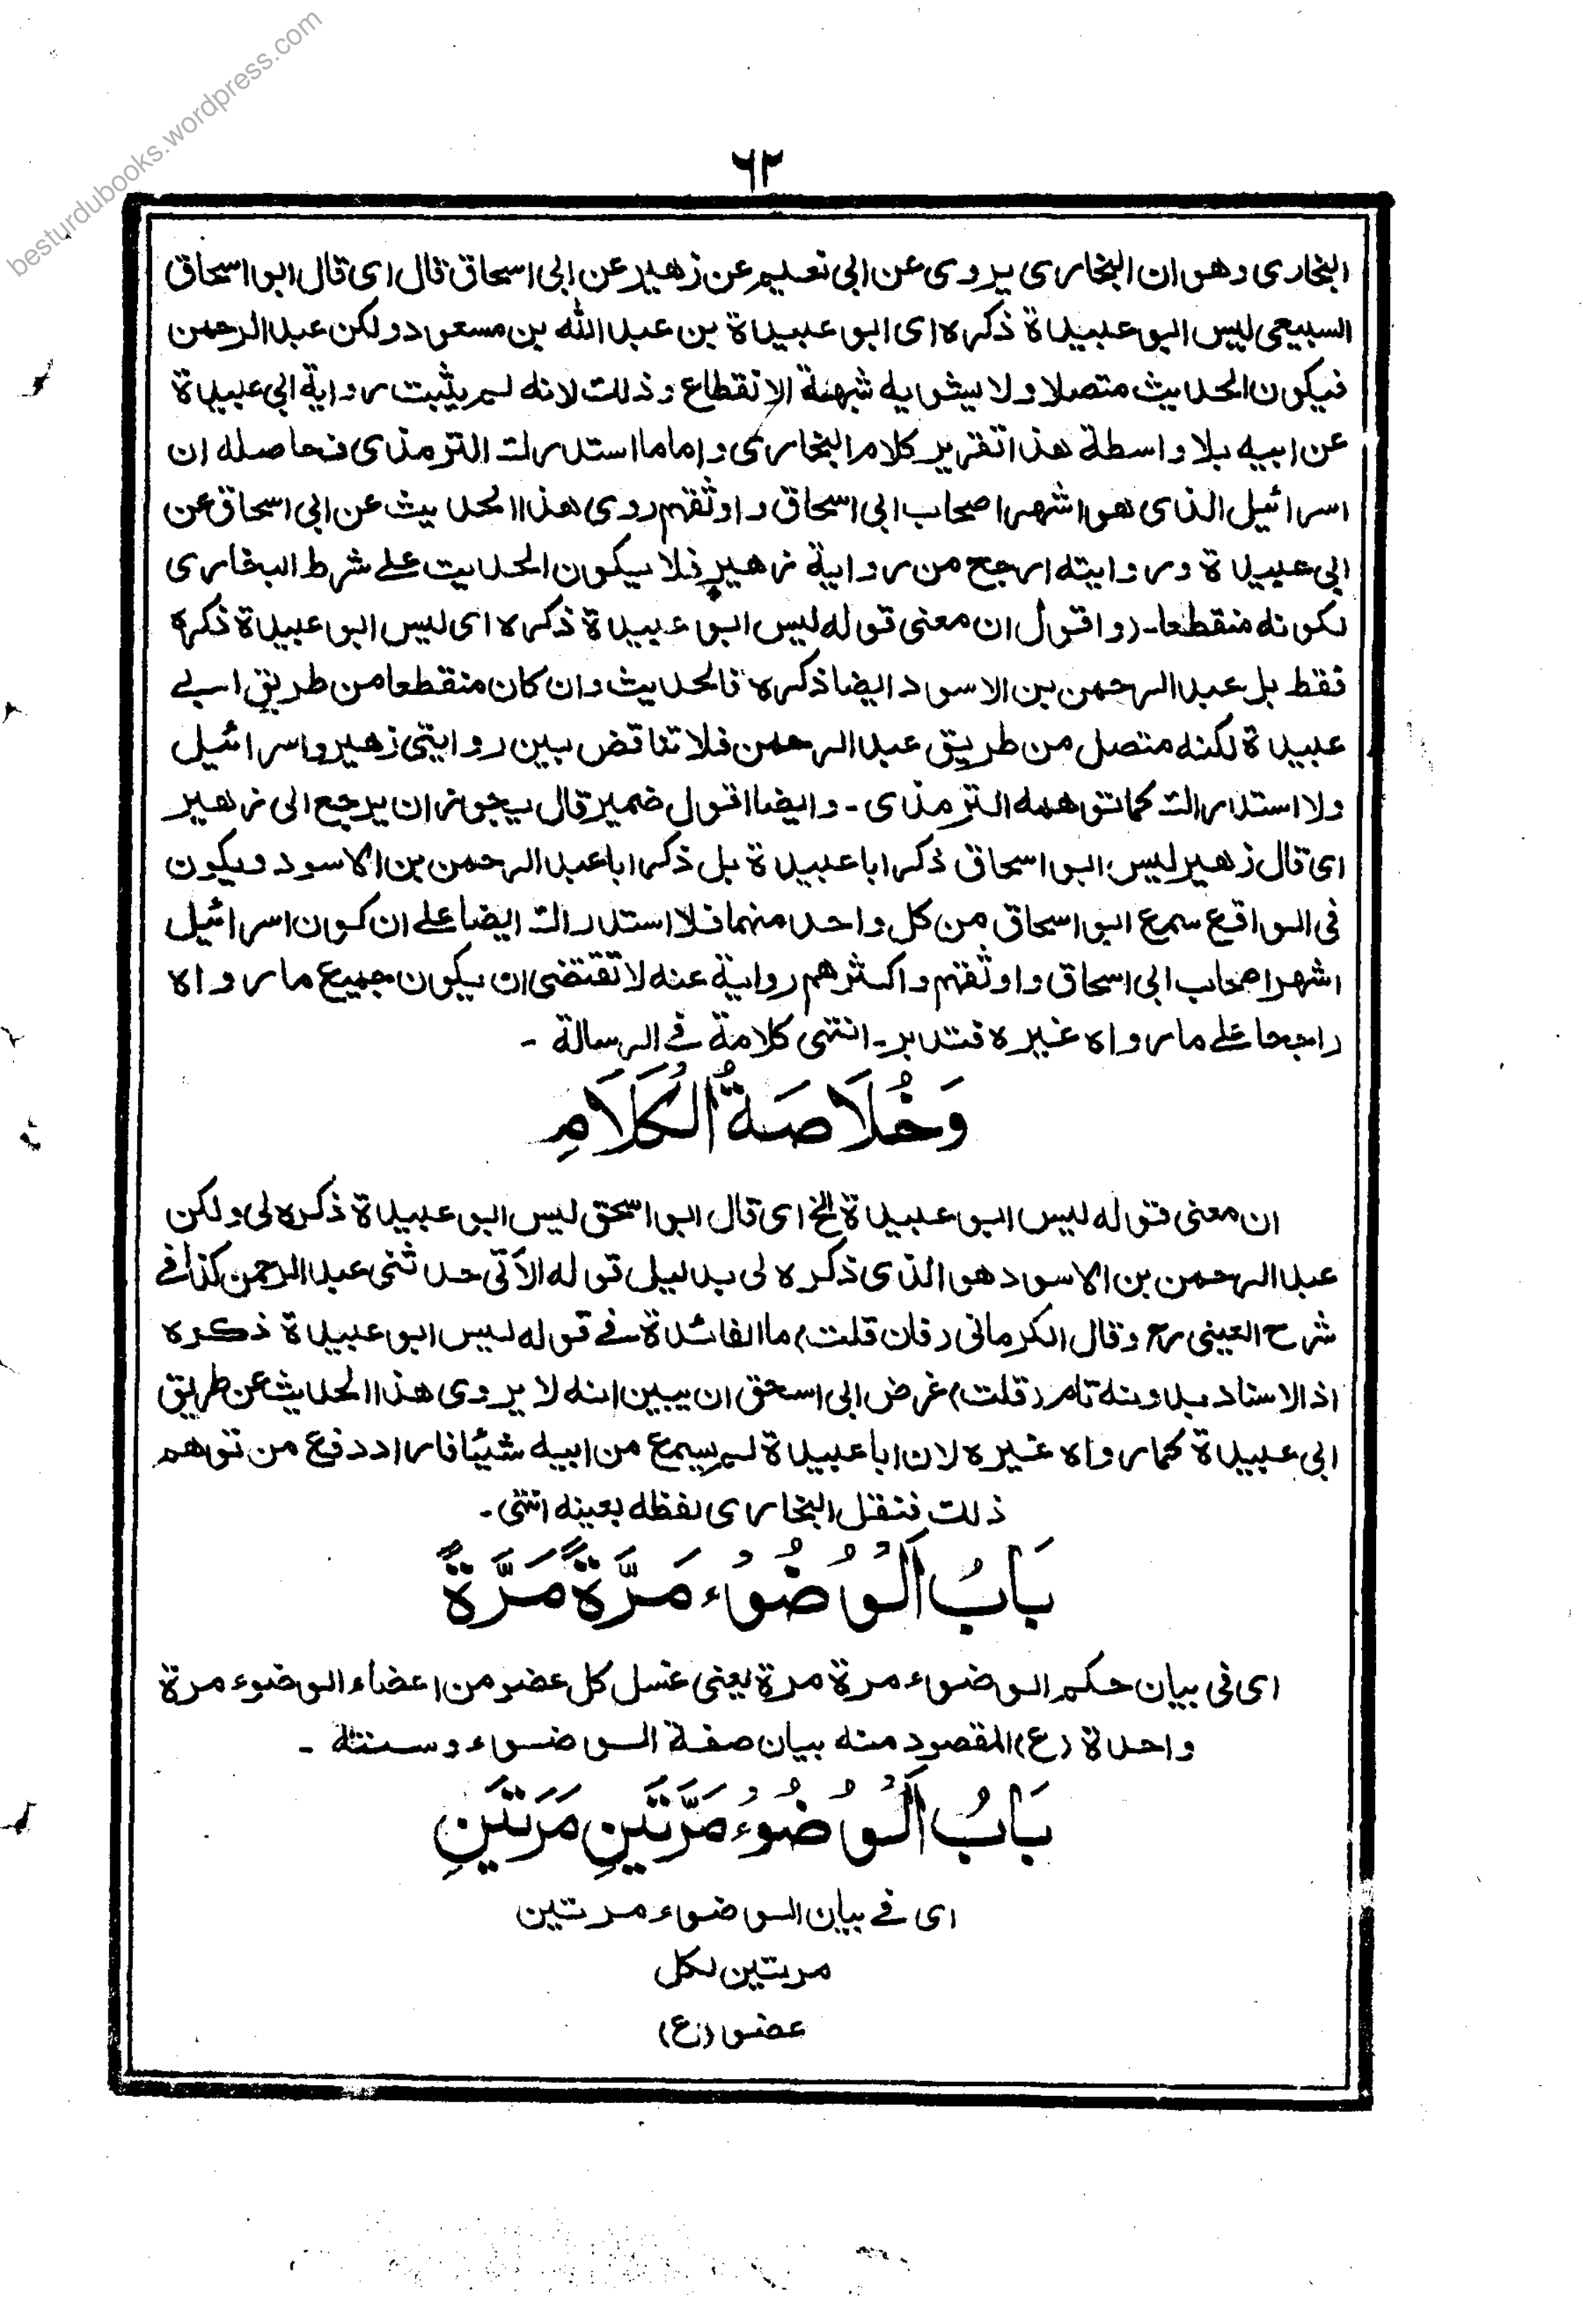 besturdubooks.wordpress.com
٦٢
البخارى وهو ان البخارى يروى عن ابى نعيم عن زهير عن ابى اسحاق قال اى قال ابو اسحاق
السبيعى ليس ابو عبيدة ذكره اى ابو عبيدة بن عبد الله بن مسعود ولكن عبد الرحمن
فيكون الحديث متصلا ولا يشوبه شبهة الانقطاع وذلك لانه لم يثبت رواية ابى عبيدة
عن ابيه بلا واسطة هذا تقرير كلام البخارى واما ما استدرك الترمذى فحاصله ان
اسرائيل الذى هو اشهر اصحاب ابى اسحاق واوثقهم روى هذا الحديث عن ابى اسحاق عن
ابى عبيدة وروايته ارجح من رواية زهير فلا يكون الحديث على شرط البخارى
لكونه منقطعا۔ (واقول ان معنى قوله ليس ابو عبيدة ذكره اى ليس ابو عبيدة ذكره
فقط بل عبد الرحمن بن الاسود ايضا ذكره فالحديث وان كان منقطعا من طريق ابى
عبيدة لكنه متصل من طريق عبد الرحمن فلا تناقض بين روايتى زهير واسرائيل
ولا استدراك كما توهمه الترمذى ۔ وايضا اقول ضمير قال يجوز ان يرجع الى زهير
اى قال زهير ليس ابو اسحاق ذكر ابا عبيدة بل ذكر ابا عبد الرحمن بن الاسود ويكون
فى الواقع سمع ابو اسحاق من كل واحد منهما فلا استدراك ايضا على ان كون اسرائيل
اشهر اصحاب ابى اسحاق واوثقهم واكثرهم رواية عنه لا تقتضى ان يكون جميع ما رواه
راجحا على ما رواه غيره فتدبر۔ انتهى كلامة فى الرسالة ۔
وَخُلَاصَةُ الْكَلَامِ
ان معنى قوله ليس ابو عبيدة الخ اى قال ابو اسحق ليس ابو عبيدة ذكره لى ولكن
عبد الرحمن بن الاسود هو الذى ذكره لى بدليل قوله الآتى حدثنى عبد الرحمن كذا فى
شرح العينى رح وقال الكرمانى (فان قلت) ما الفائدة فى قوله ليس ابو عبيدة ذكره
اذ الاسناد بدونه تام (قلت) غرض ابى اسحق ان يبين انه لا يروى هذا الحديث عن طريق
ابى عبيدة كما رواه غيره لان ابا عبيدة لم يسمع من ابيه شيئا فاراد دفع من توهم
ذلك فنقل البخارى لفظه بعينه انتهى۔
بَابُ الْوُضُوْءِ مَرَّةً مَرَّةً
اى فى بيان حكم الوضوء مرة مرة يعنى غسل كل عضو من اعضاء الوضوء مرة
واحدة (ع) المقصود منه بيان صفة الوضوء وسننه ۔
بَابُ الْوُضُوْءِ مَرَّتَيْنِ مَرَتَيْنِ
اى فى بيان الوضوء مرتين
مرتين لكل
عضو (ع)